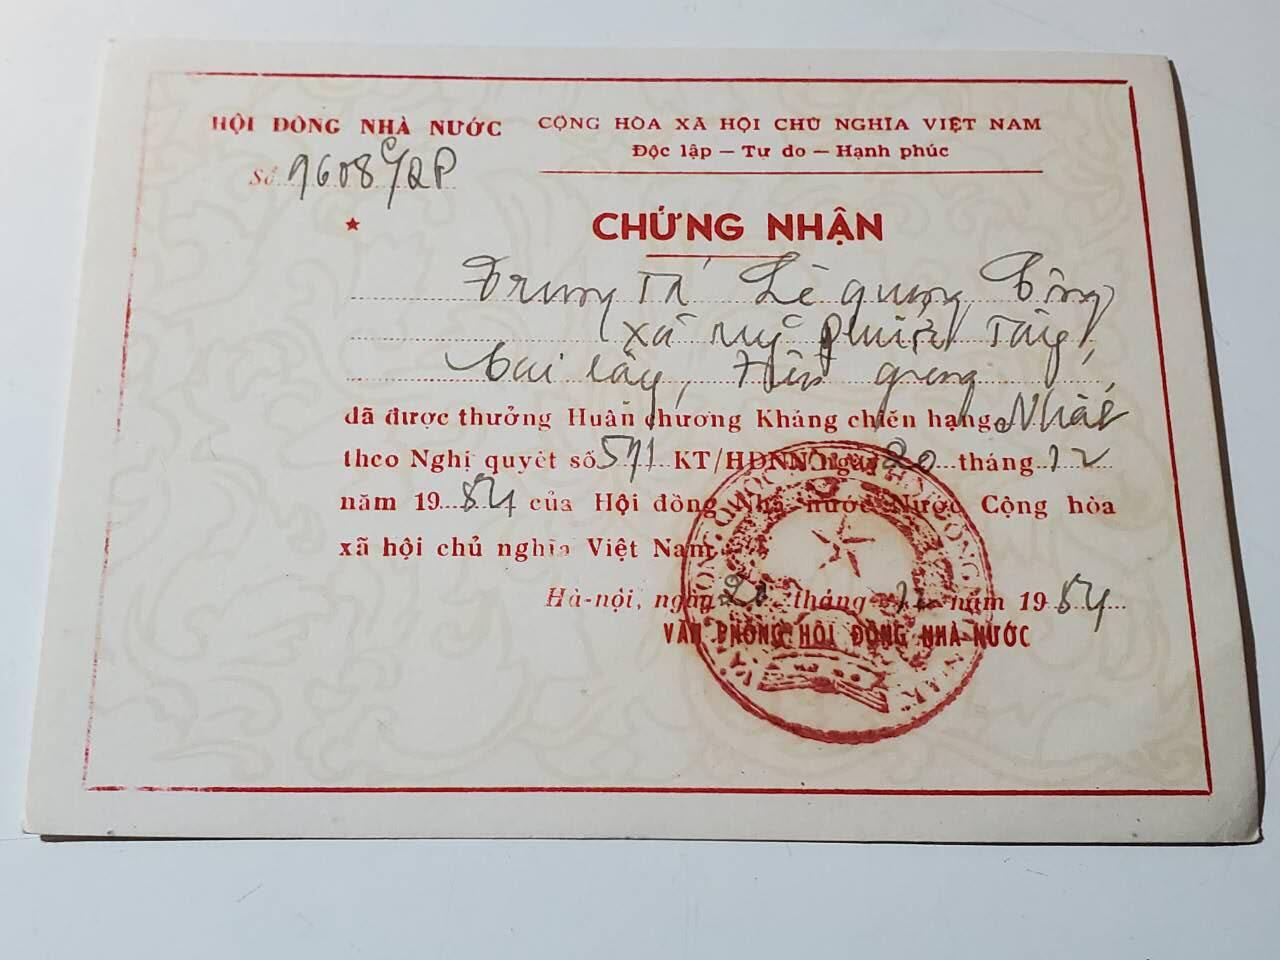 HỘI ĐÔNG NHÀ NƯỚC
Số 9608 /QP
CỘNG HÒA XÃ HỘI CHỦ NGHĨA VIỆT NAM
Độc lập — Tự do — Hạnh phúc
CHỨNG NHẬN
Trung Tá Lê quang Công
Xã Mỹ phước Tây,
Cai Lậy, Tiền giang
đã được thưởng Huân chương Kháng chiến hạng Nhất
theo Nghị quyết số 571 KT/HĐNN ngày 20 tháng 12
năm 1984 của Hội đồng Nhà nước Nước Cộng hòa
xã hội chủ nghĩa Việt Nam
Hà-nội, ngày 20 tháng 12 năm 1984
VĂN PHÒNG HỘI ĐỒNG NHÀ NƯỚC